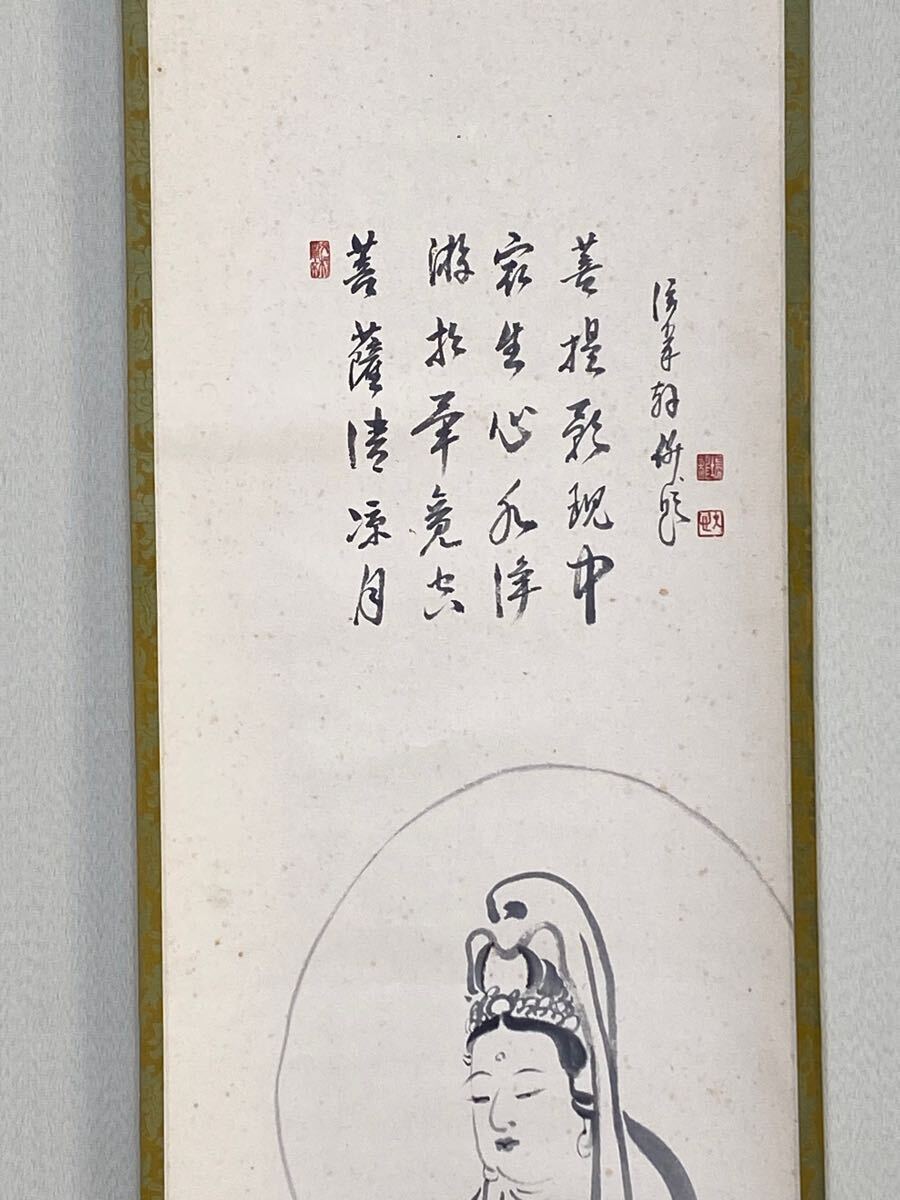 菩薩清涼月
游於畢竟空
衆生心水浄
菩提影現中